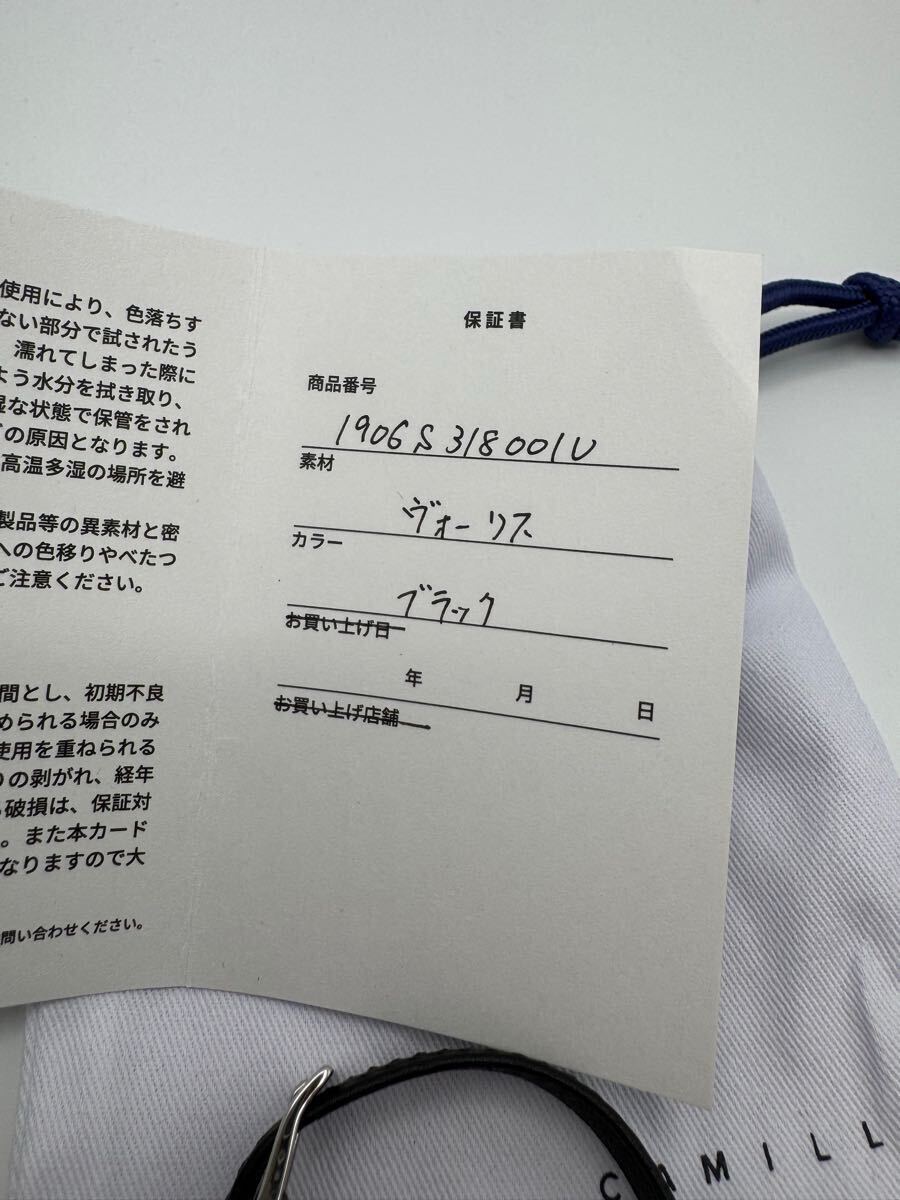 使用により、色落ちす
ない部分で試されたう
濡れてしまった際に
よう水分を拭き取り、
湿な状態で保管をされ
の原因となります。
高温多湿の場所を避
製品等の異素材と密
への色移りやべたつ
ご注意ください。
間とし、初期不良
められる場合のみ
使用を重ねられる
の剥がれ、経年
破損は、保証対
。また本カード
なりますので大
問い合わせください。
保証書
商品番号
1906S318001U
素材
ヴォーリス
カラー
ブラック
お買い上げ日
年 月 日
お買い上げ店舗
CAMILL